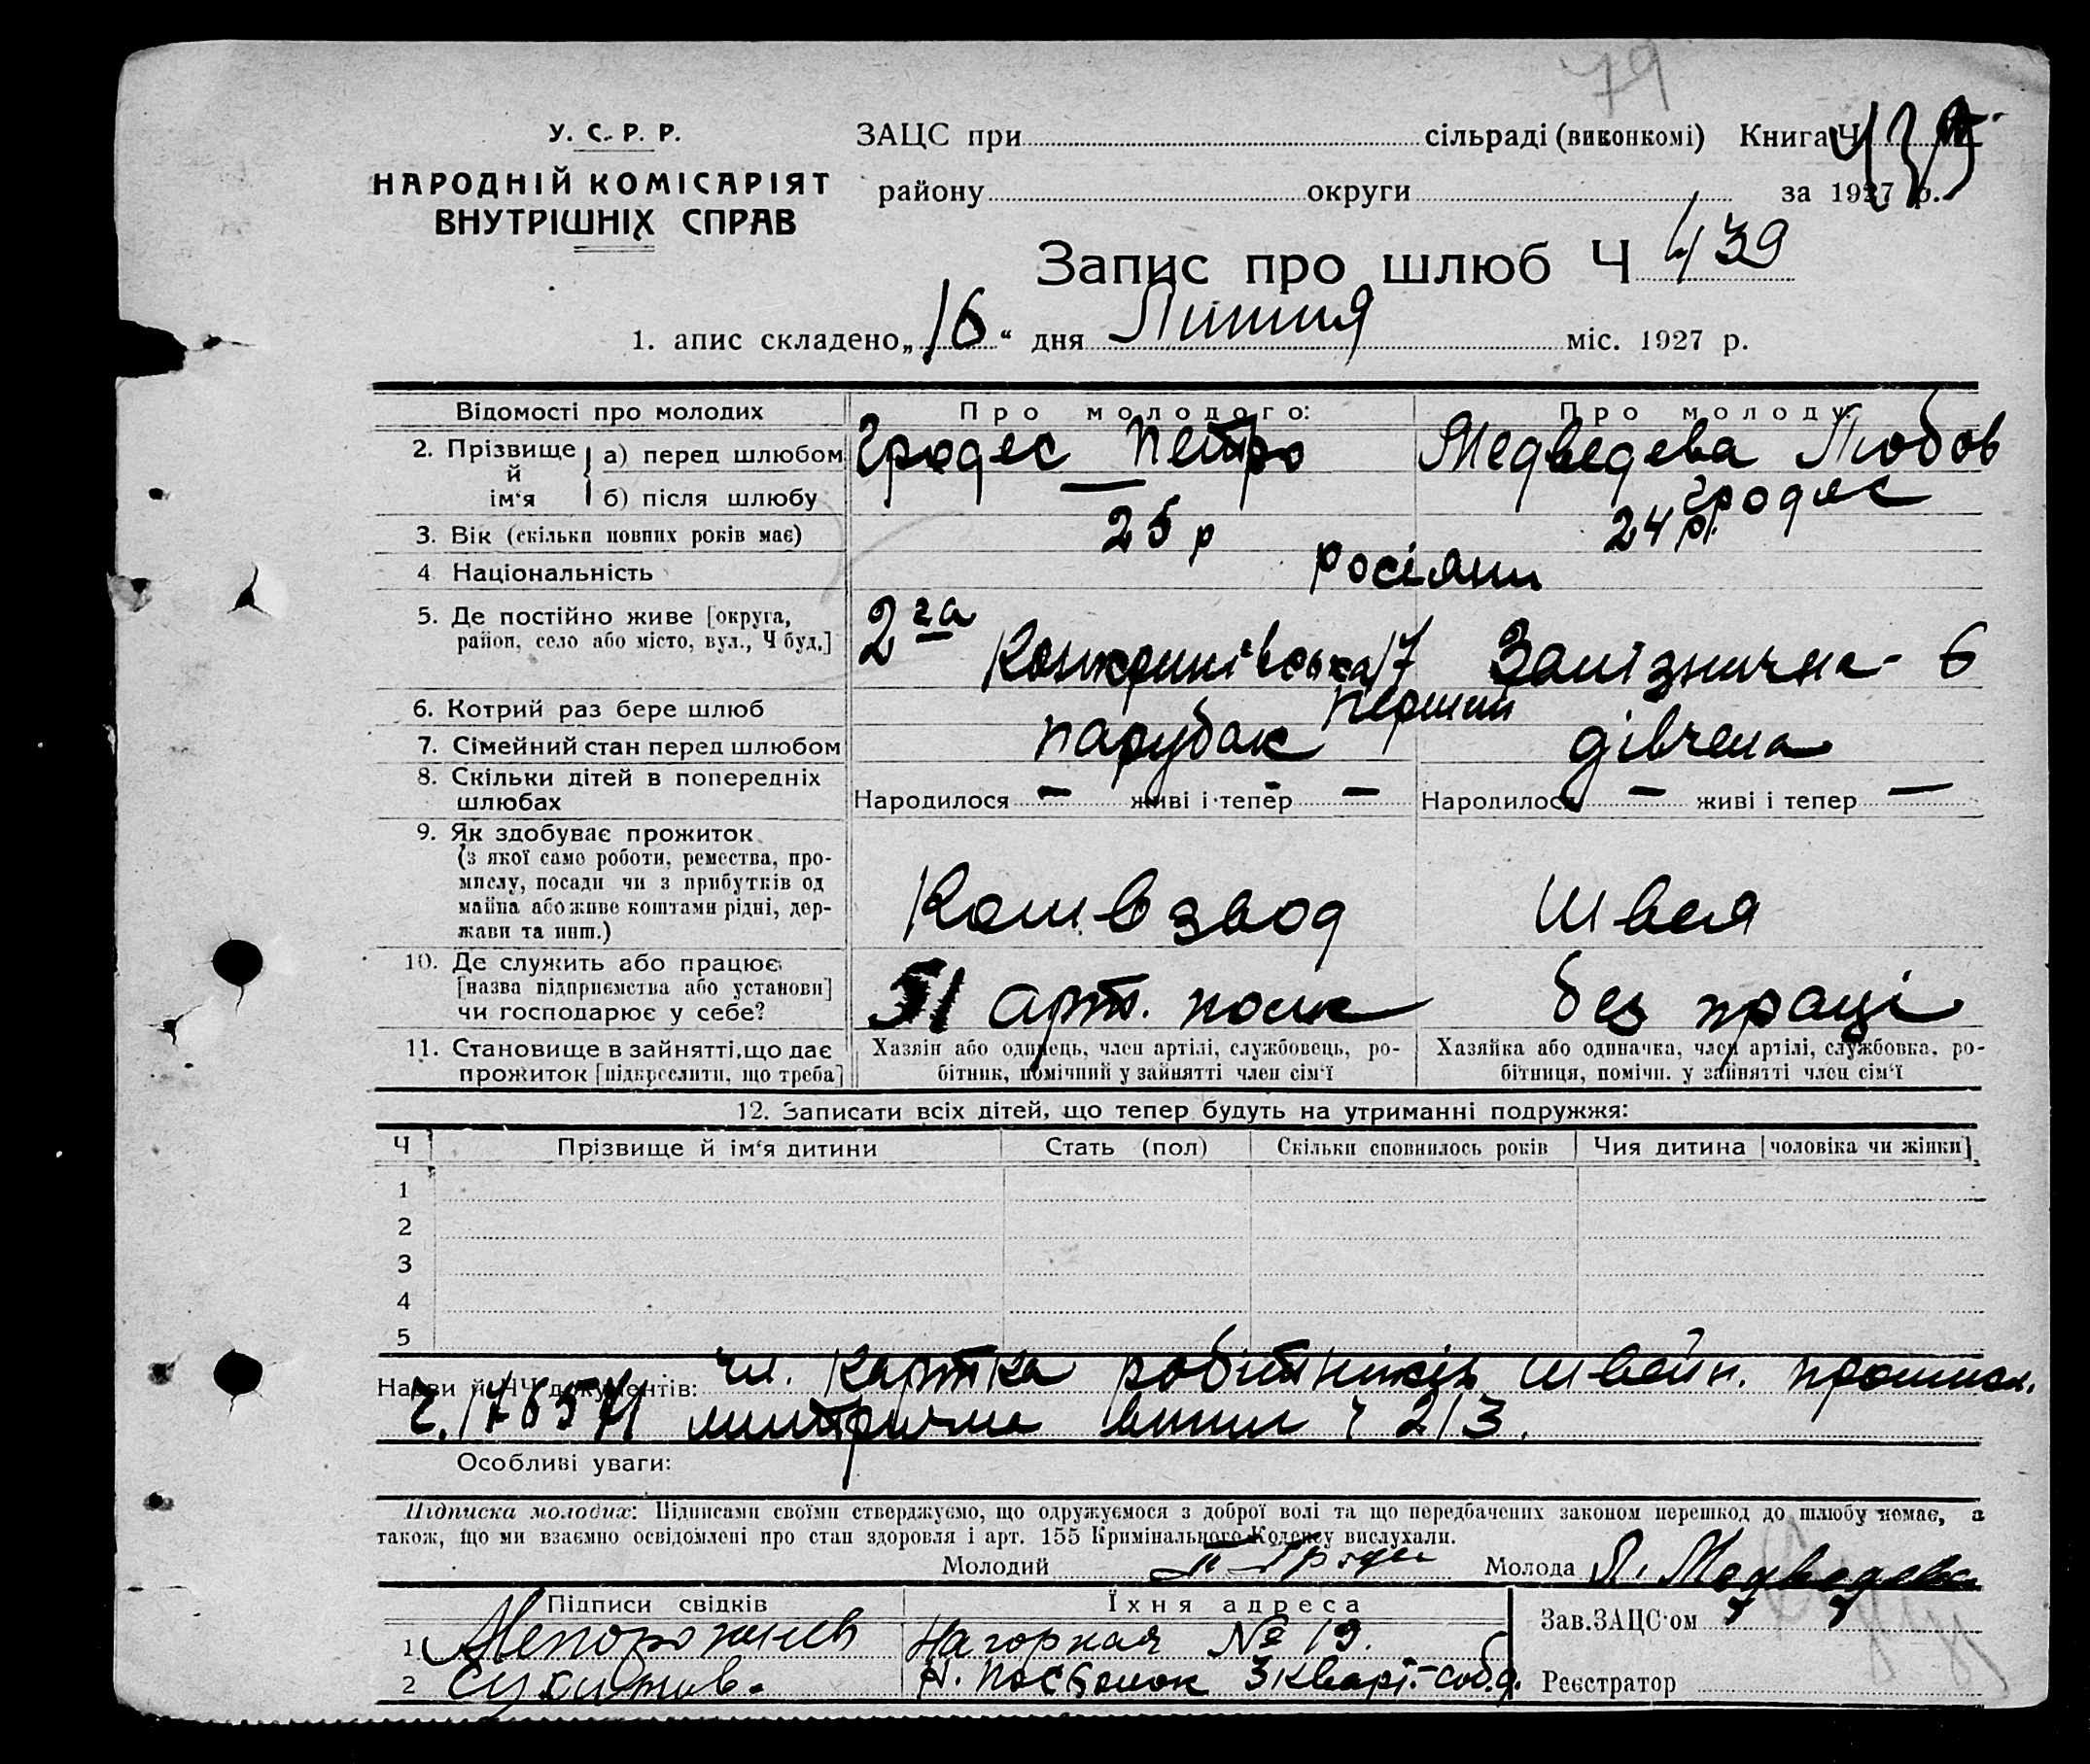 79
У. С. Р. Р.
НАРОДНІЙ КОМІСАРІЯТ
ВНУТРІШНІХ СПРАВ
ЗАЦС при сільраді (виконкомі) Книга Ч
району округи за 1927 р.
Запис про шлюб Ч 439
1. апис складено „16“ дня Липня міс. 1927 р.
Відомості про молодих Про молодого: Про молоду:
2. Прізвище й ім'я а) перед шлюбом Гродес Петро Медведева Любов
б) після шлюбу — Гродес
3. Вік (скільки повних років має) 25 р 24 р.
4 Національність росіяни
5. Де постійно живе [округа, 2га
район, село або місто, вул., Ч буд.] 17 Залізнична - 6
6. Котрий раз бере шлюб перший
7. Сімейний стан перед шлюбом парубак дівчена
8. Скільки дітей в попередніх
шлюбах Народилося — живі і тепер — Народилося — живі і тепер —
9. Як здобуває прожиток
(з якої само роботи, ремества, про-
мислу, посади чи з прибутків од
майна або живе коштами рідні, дер-
жави та инш.) Ком. взвод Швея
10. Де служить або працює
[назва підприємства або установи]
чи господарює у себе? 51 арт. полк без праці
11. Становище в зайнятті, що дає Хазяїн або одинець, член артілі, службовець, ро- Хазяйка або одиначка, член артілі, службовка, ро-
прожиток [підкреслити, що треба] бітник, помічний у зайнятті член сім'ї бітниця, помічн. у зайнятті член сім'ї
12. Записати всіх дітей, що тепер будуть на утриманні подружжя:
Ч Прізвище й ім'я дитини Стать (пол) Скільки сповнилось років Чия дитина [чоловіка чи жінки]
1
2
3
4
5
Назви й ЧЧ документів: чл. картка робітників швейн. промисл.
ч. 176571 метрична випис ч 213.
Особливі уваги:
Підписка молодих: Підписами своїми стверджуємо, що одружуємося з доброї волі та що передбачених законом перешкод до шлюбу немає, а
також, що ми взаємно освідомлені про стан здоровля і арт. 155 Кримінального Кодексу вислухали.
Молодий Молода Л. Медведева
Підписи свідків Їхня адреса Зав. ЗАЦС'ом
1 Нагорная № 19.
2 Н. посьолок 3 кварт. соб. д. Реєстратор